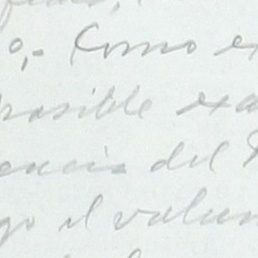 o,- Como e
posible exa
encia del
go el volum